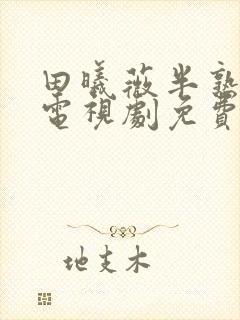 田曦薇半熟
電視劇免費
地支木